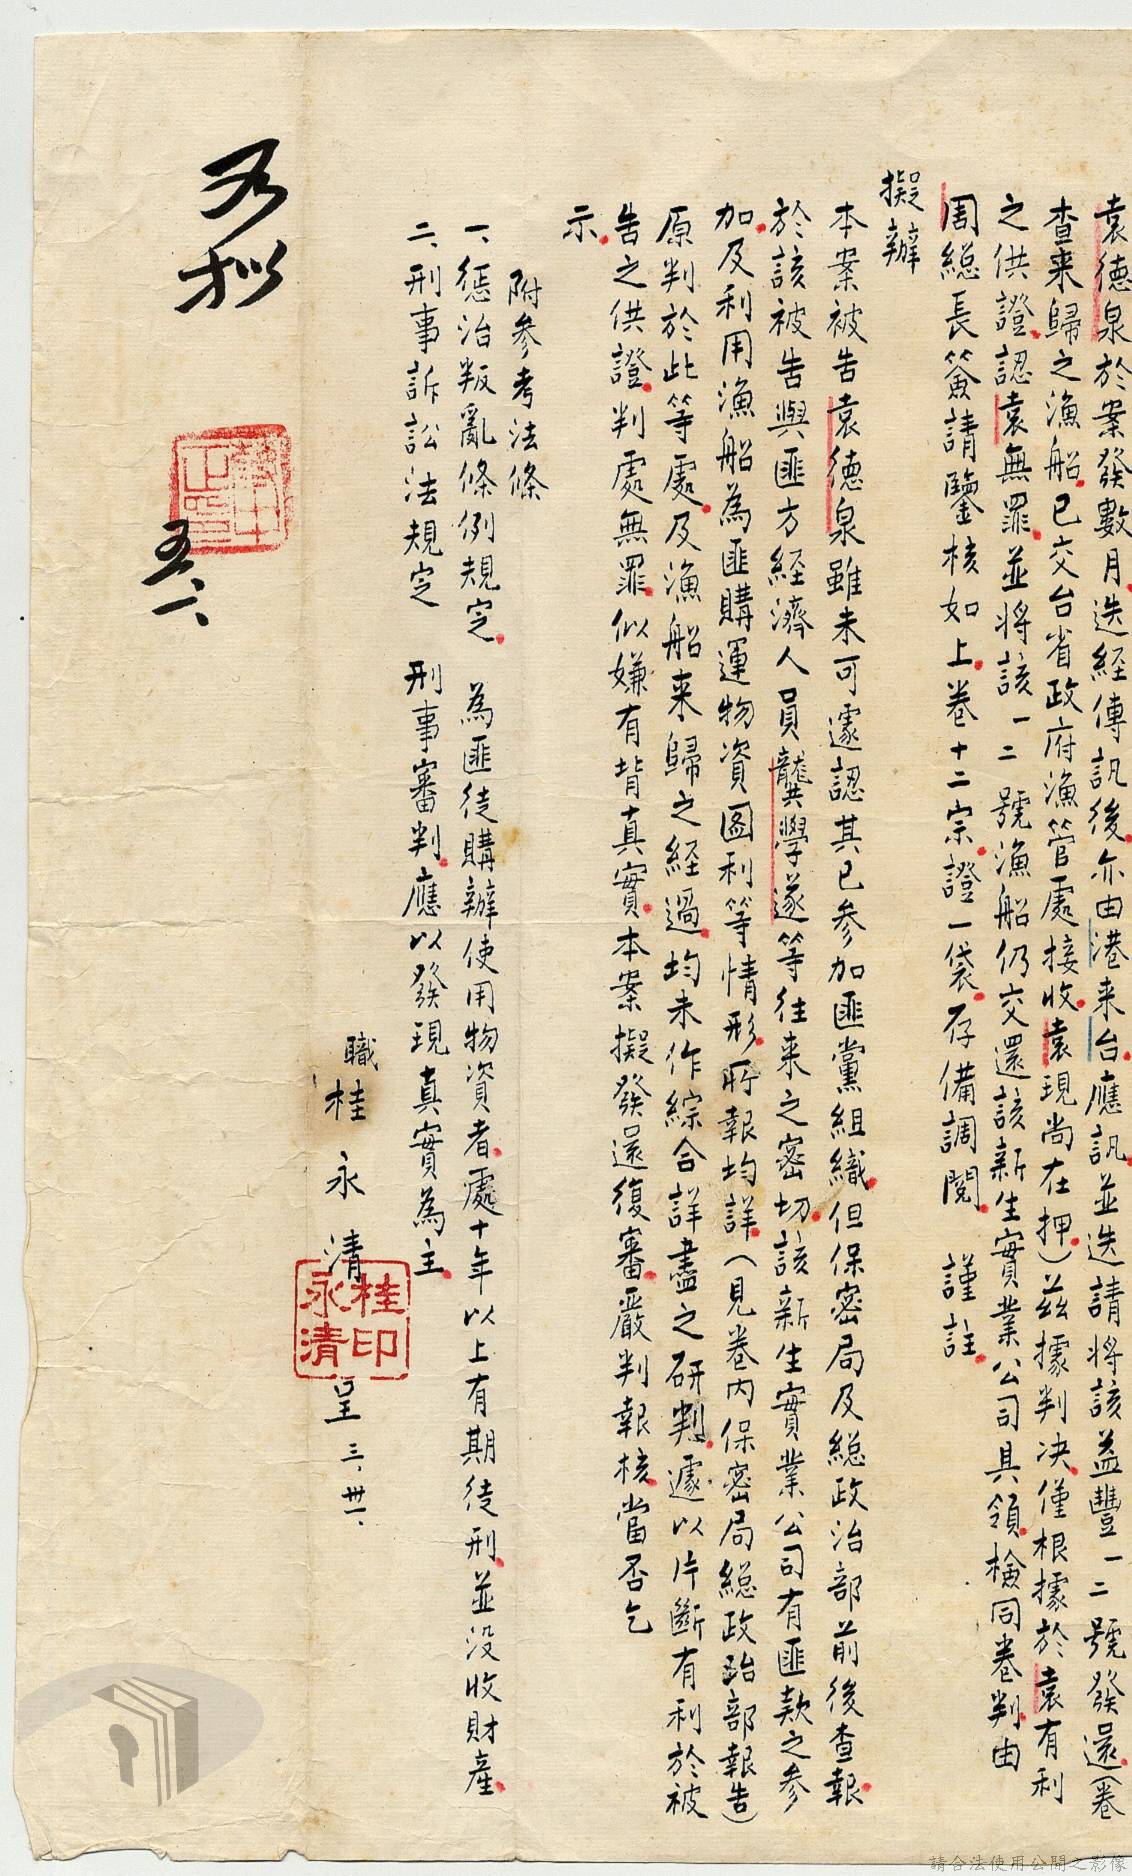 袁德泉於案發數月迭經傳訊後亦由港来台應訊並迭請將該益豐一二號發還(卷
查来歸之漁船已交台省政府漁管處接收袁現尚在押)茲據判决僅根據於袁有利
之供證認袁無罪並將該一二號漁船仍交還該新生實業公司具領檢同卷判由
周總長簽請鑒核如上卷十二宗證一袋存備調閱 謹註
擬辦
本案被告袁德泉雖未可遽認其已參加匪黨組織但保密局及總政治部前後查報
於該被告與匪方經濟人員龔學遂等往来之密切該新生實業公司有匪款之參
加及利用漁船為匪購運物資圖利等情形所報均詳(見卷内保密局總政治部報告)
原判於此等處及漁船来歸之經過均未作綜合詳盡之研判遽以片斷有利於被
告之供證判處無罪似嫌有背真實本案擬發還復審嚴判報核當否乞
示
附參考法條
一、懲治叛亂條例規定 為匪徒購辦使用物資者處十年以上有期徒刑並没收財產
二、刑事訴訟法規定 刑事審判應以發現真實為主
職桂永清呈 三、卅一、
桂永清印
如拟
五、一、
請合法使用公開之影像